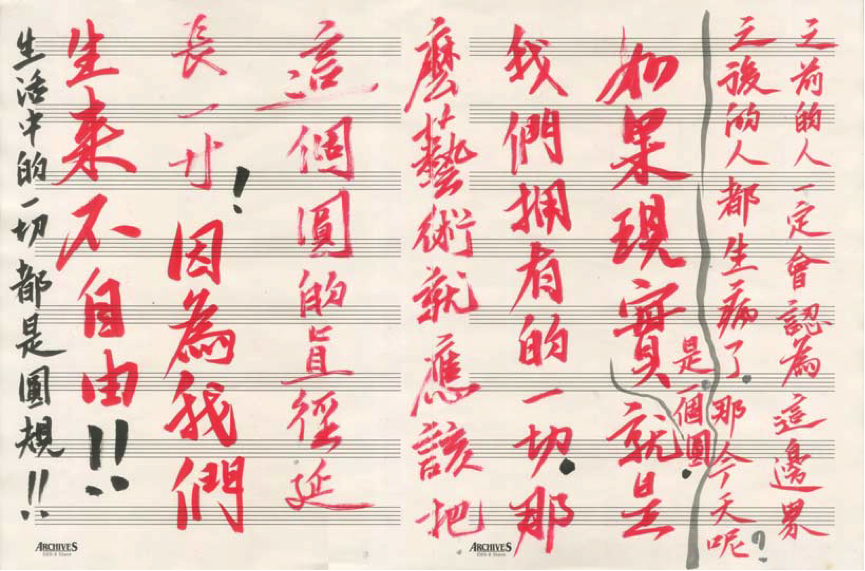 之前的人一定會認為這邊界
之後的人都生病了.那今天呢?
如果現實就是
是一個圓.
我們拥有的一切.那
麼藝術就應該把
這個圓的直徑延
長一寸!因為我們
生来不自由!!
生活中的一切都是圓規!!
ARCHIVES
ARCHIVES